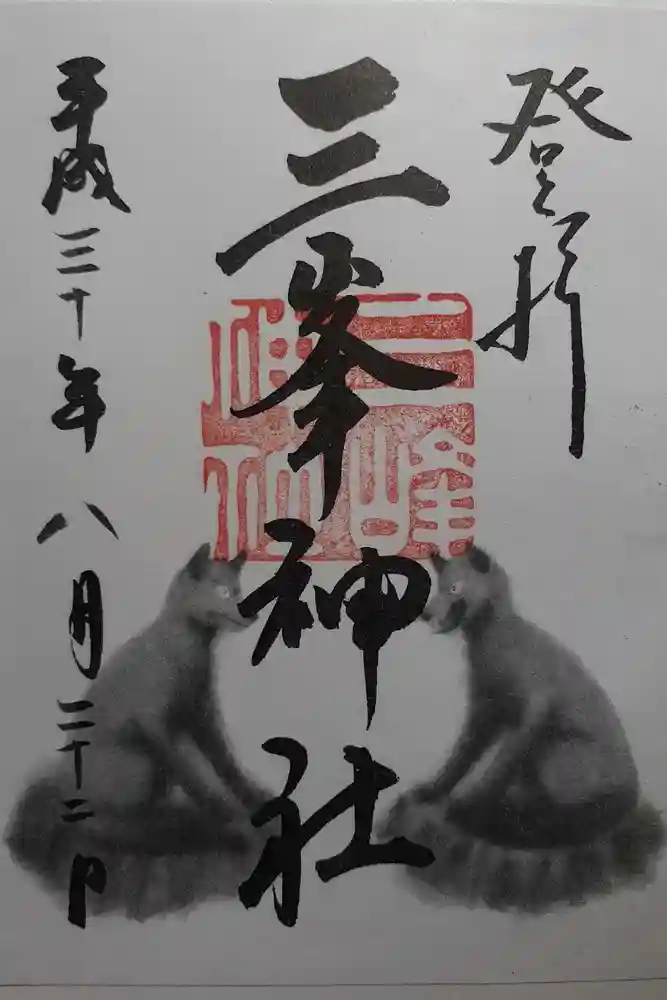 登拝
三峯神社
三峰神社
平成三十年八月二十二日